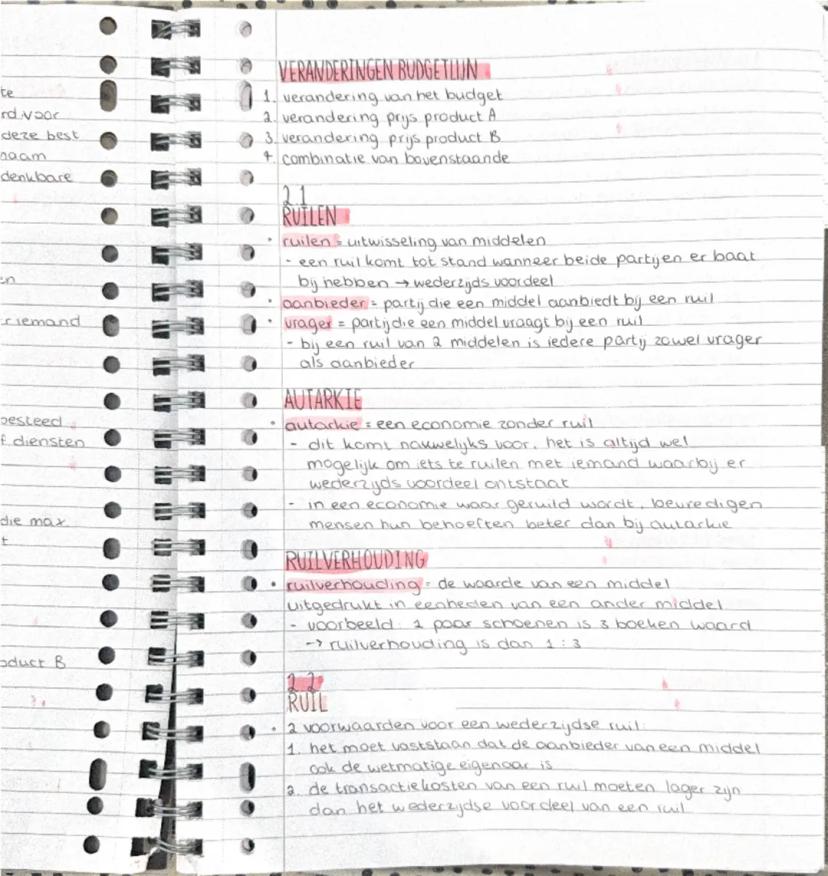 te
rd voor
deze best
naam
denkbare
en
r iemand
besteed
f diensten
die max
t
oduct B
VERANDERINGEN BUDGETLIJN
1. verandering van het budget
2. verandering prijs product A
3. verandering prijs product B
4. combinatie van bovenstaande
2.1
RUILEN
• ruilen = uitwisseling van middelen
- een ruil komt tot stand wanneer beide partijen er baat
bij hebben → wederzijds voordeel
• aanbieder = partij die een middel aanbiedt bij een ruil
• vrager = partij die een middel vraagt bij een ruil
- bij een ruil van 2 middelen is iedere partij zowel vrager
als aanbieder
AUTARKIE
• autarkie = een economie zonder ruil
- dit komt nauwelijks voor, het is altijd wel
mogelijk om iets te ruilen met iemand waarbij er
wederzijds voordeel ontstaat
- in een economie waar geruild wordt, bevredigen
mensen hun behoeften beter dan bij autarkie
RUILVERHOUDING
• ruilverhouding = de waarde van een middel
uitgedrukt in eenheden van een ander middel
- voorbeeld: 1 paar schoenen is 3 boeken waard
→ ruilverhouding is dan 1 : 3
2.2
RUIL
• 2 voorwaarden voor een wederzijdse ruil:
1. het moet vaststaan dat de aanbieder van een middel
ook de wetmatige eigenaar is
2. de transactiekosten van een ruil moeten lager zijn
dan het wederzijdse voordeel van een ruil